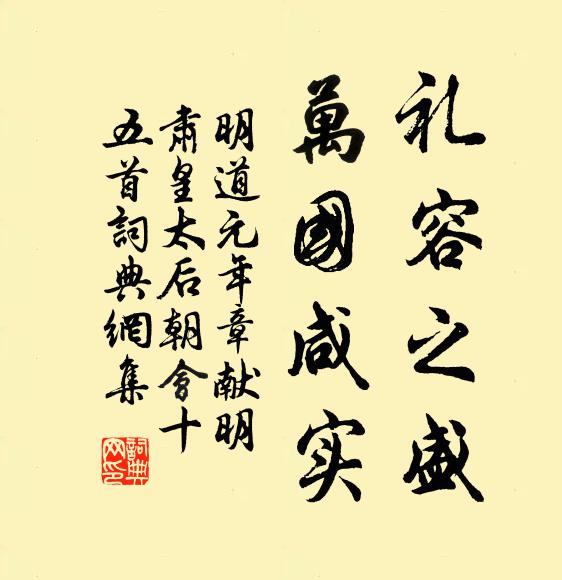 礼容之盛
萬國咸实
明道元年章献明
肅皇太后朝會十
五首詞典網集
詞典
网印